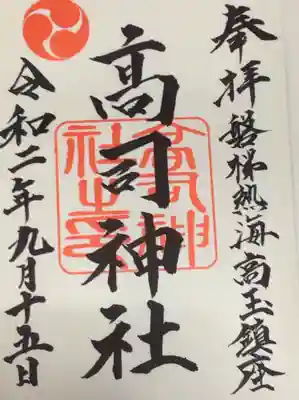 奉拝磐梯熱海高玉鎮座
高司神社
令和二年九月十五日